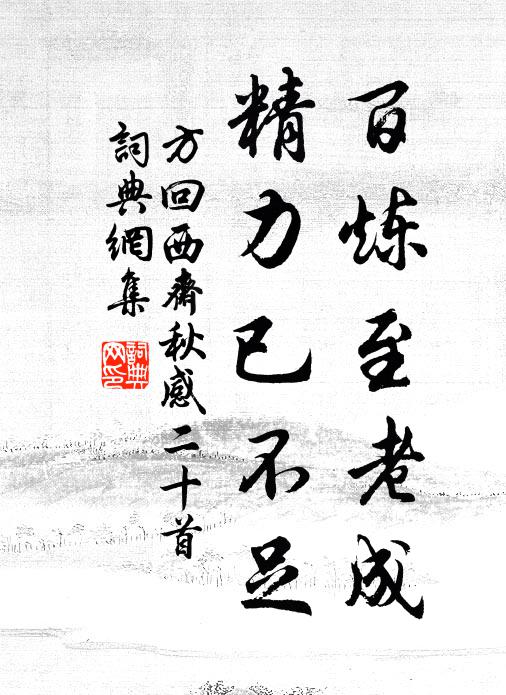 百炼至老成
精力已不足
方回西齋秋感二十首
詞典網集
詞典
网印